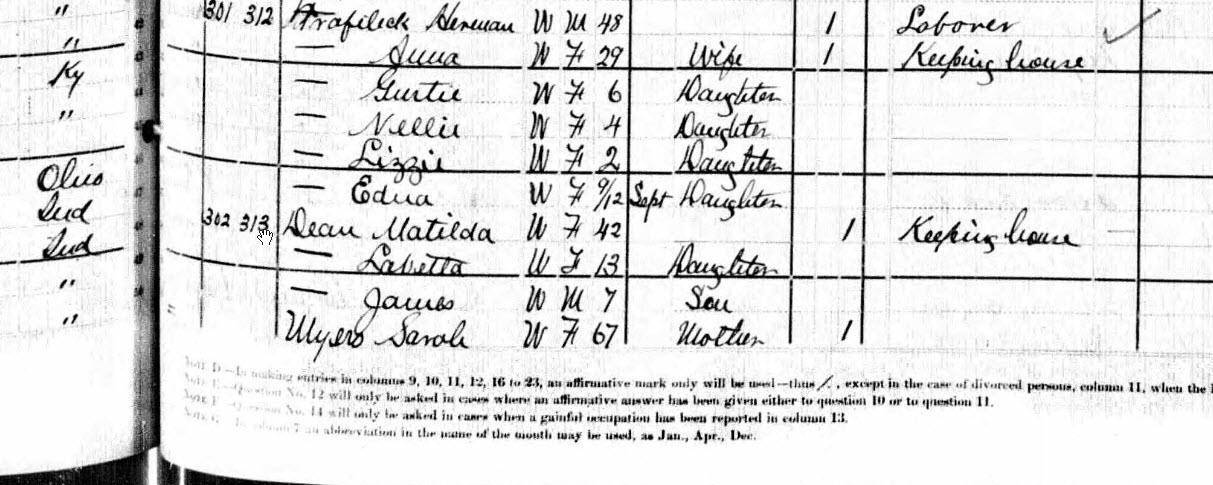 " 301 312 Herman W M 48 1 Laborer
" — Anna W F 29 Wife 1 Keeping house
Ky — Gurtie W F 6 Daughter
" — Nellie W F 4 Daughter
— Lizzie W F 2 Daughter
Ohio — Edna W F 9/12 Sept Daughter
Ind 302 313 Dean Matilda W F 42 1 Keeping house
Ind — W F 13 Daughter
" — James W M 7 Son
" Myers Sarah W F 67 Mother 1
NOTE D.—In making entries in columns 9, 10, 11, 12, 16 to 23, an affirmative mark only will be used—thus /, except in the case of divorced persons, column 11, when the
NOTE E.—Question No. 12 will only be asked in cases where an affirmative answer has been given either to question 10 or to question 11.
NOTE F.—Question No. 14 will only be asked in cases when a gainful occupation has been reported in column 13.
NOTE G.—In column 7 an abbreviation in the name of the month may be used, as Jan., Apr., Dec.